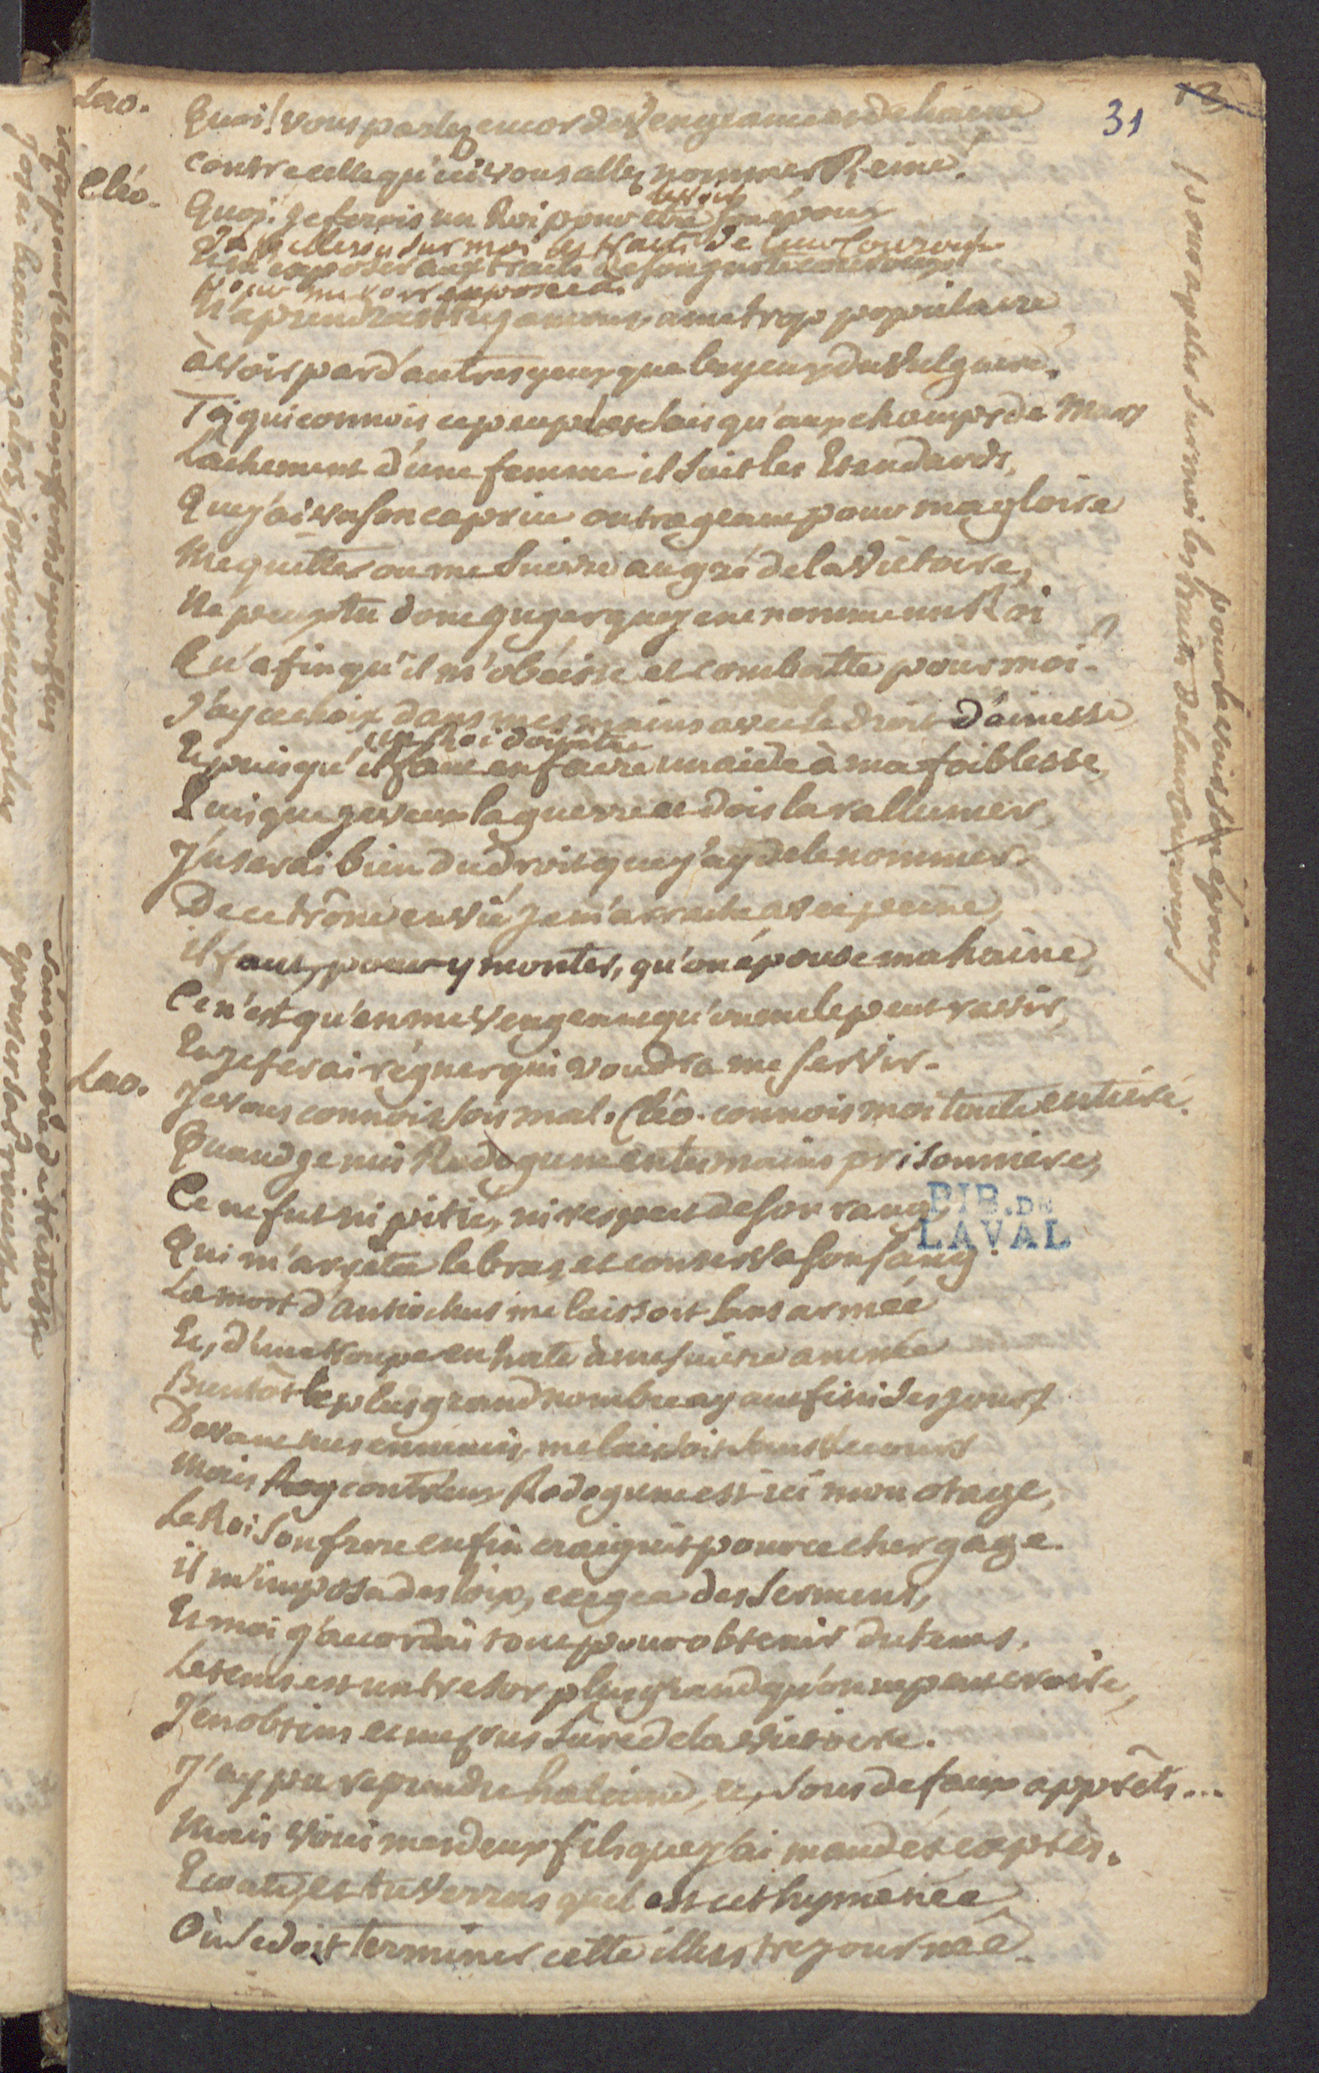 31
13
Lao. Quoi! vous parlez encor de vengeance et de haine
contre celle qu'ici vous allez nommer Reine!
Cléo. Quoi! je ferois un Roi pour être son époux
le voir
les traits de leur courroux
Et m'exposer aux traits de son juste courroux
pour me voir exposée a
N'aprendras tu jamais, ame trop populaire
à voir par d'autres yeux que les yeux du vulgaire,
Toi qui connois ce peuple et sais qu'aux champs de Mars
Lachement d'une femme il suit les Etendards,
Que j'ai vu son caprice outrageant pour ma gloire
Me quitter ou me suivre au gré de la victoire,
Ne peux tu donc juger que je ne nomme un Roi
Qu'afin qu'il m'obéisse et combatte pour moi.
J'ay ce choix dans mes mains avec le droit d'ainesse
un Roi doit être
Et puisqu'il faut en faire un aide à ma foiblesse,
Puisque je veux la guerre et dois la rallumer,
J'userai bien du droit que j'ay de le nommer.
De ce trône envié je m'arrache avec peine,
il faut, pour y monter, qu'on épouse ma haine,
Ce n'est qu'en me vengeant qu'on me le peut ravir,
Et je ferai régner qui voudra me servir.
Lao. Je vous connois fort mal. Cléo. connois moi toute entière.
Quand je mis Rodogune en tes mains prisonniere,
Ce ne fut ni pitié, ni respect de son rang
Qui m'arrêta le bras et conserva son sang.
BIB. DE
LAVAL
La mort d'antiochus me laissoit sans armée
Et, d'une troupe en hate à me suivre animée
Bientôt le plus grand nombre ayant fini ses jours
Devant mes ennemis, me laissoit sans secours
Mais contr'eux Rodogune est ici mon otage,
Le Roi son frere enfin craignit pour ce cher gage.
il m'imposa des loix, exigea des sermens,
Et moi j'accordai tout pour obtenir du tems,
Le tems est un tresor plus grand qu'on ne peut croire,
J'en obtins et me crus sure de la victoire.
J'ay pu reprendre haleine, et, sous de faux apprêts...
Mais voici mes deux fils que j'ai mandés exprès.
Ecoute, et tu verras quel est cet hyménée
Où se doit terminer cette illustre journée.
pour apeler sur moi les traits de leur courroux
pour le voir son époux